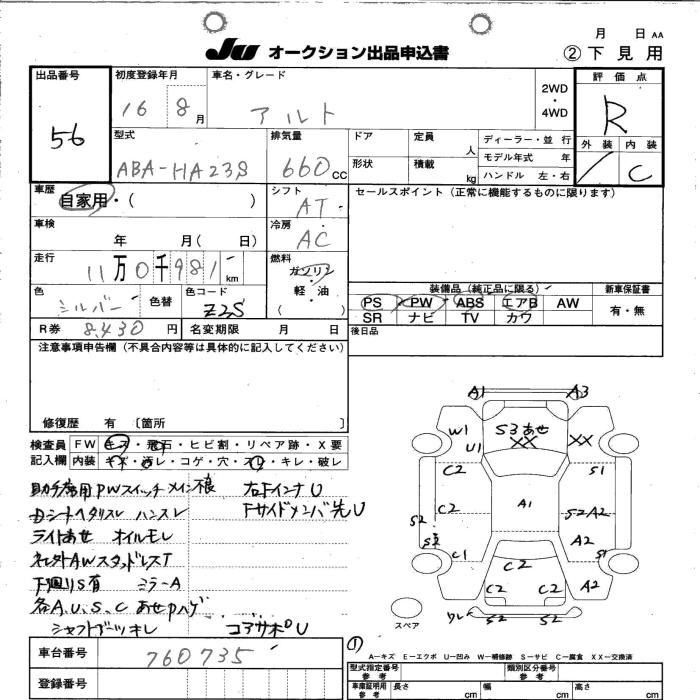 月 日 AA
JU オークション出品申込書 ②下見用
出品番号 初度登録年月 車名・グレード 2WD・4WD 評価点
56 16 8月 アルト R
型式 排気量 ドア 定員 人 ディーラー・並行 外装 内装
ABA-HA23S 660cc 形状 積載 kg モデル年式 年 / C
ハンドル 左・右
車歴 シフト セールスポイント(正常に機能するものに限ります)
自家用・( ) AT
車検 年 月( 日) 冷房 AC
走行 11万0千981km 燃料 ガソリン 軽・油 ( )
装備品(純正品に限る) 新車保証書
色 シルバー 色替 色コード Z2S
PS PW ABS エアB AW 有・無
SR ナビ TV カワ
R券 8,430円 名変期限 月 日 後日品
注意事項申告欄(不具合内容等は具体的に記入してください)
修復歴 有 〔箇所 〕
検査員 FW キズ・飛石・ヒビ割・リペア跡・X要
記入欄 内装 キズ・汚レ・コゲ・穴・スレ・キレ・破レ
助手席用PWスイッチメイン不良 右FインナU
Dシートヘタリスレ ハンスレ Fサイドメンバ先U
ライトあせ オイルモレ
社外AWスタッドレスT
下廻りS有 ミラーA
各A、U、S、C あせPハゲ
シャフトブーツキレ コアサポU
車台番号 760735
登録番号
A1 A3
W1 U1 S3あせ XX XX
C2 S1
C2 A1 S2 A2
S2 S3 A2
C1 C2 S1
C2 C2 A2
ワレ S2 S2
スペア
①
A-キズ E-エクボ U-凹み W-補修跡 S-サビ C-腐食 XX-交換済
型式指定番号 参考 類別区分番号 参考
車庫証明用 参考 長さ cm 幅 cm 高さ cm